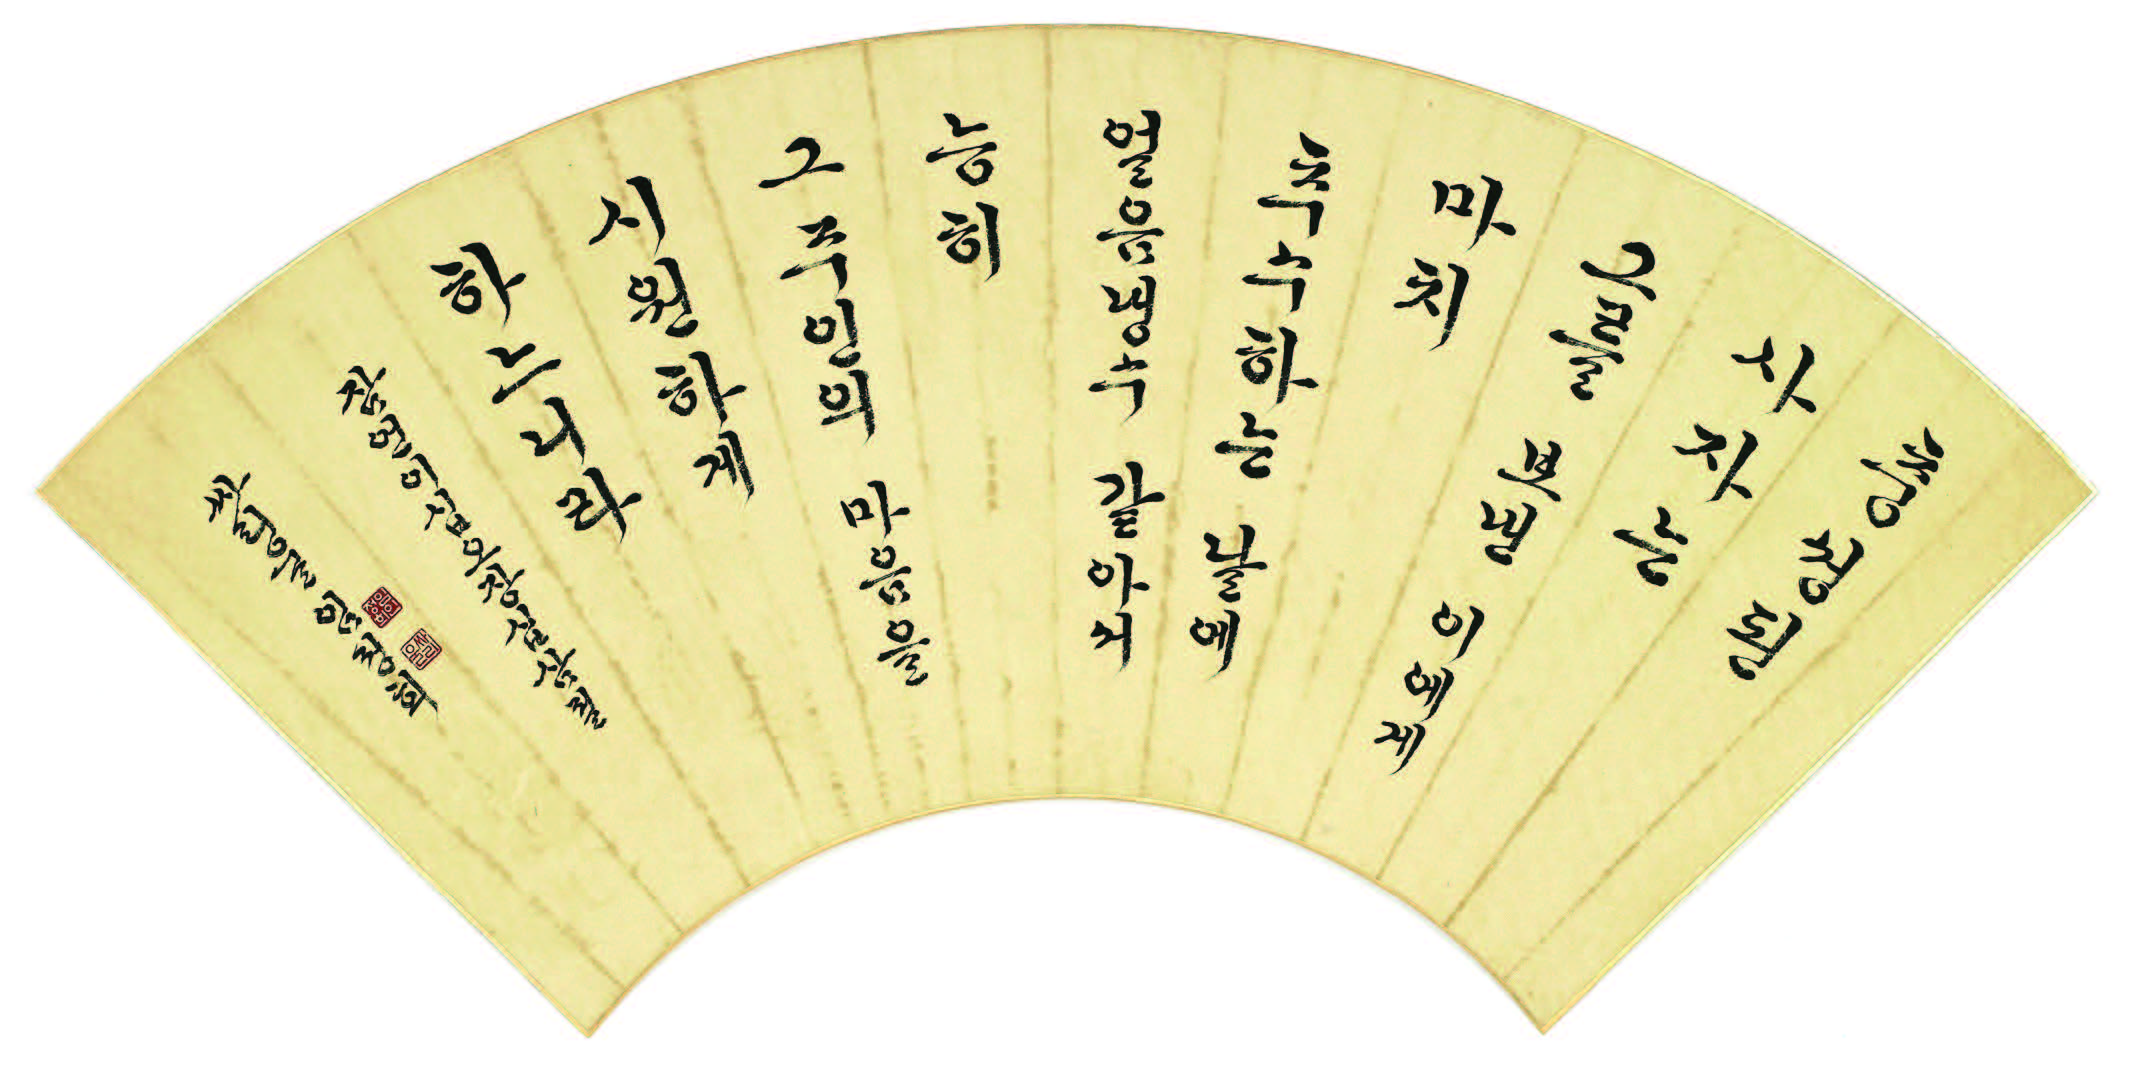 충성된
사자는
그를 보낸 이에게
마치
추수하는 날에
얼음냉수 같아서
능히
그 주인의 마음을
시원하게
하느니라
잠언이십오장십삼절
임정희